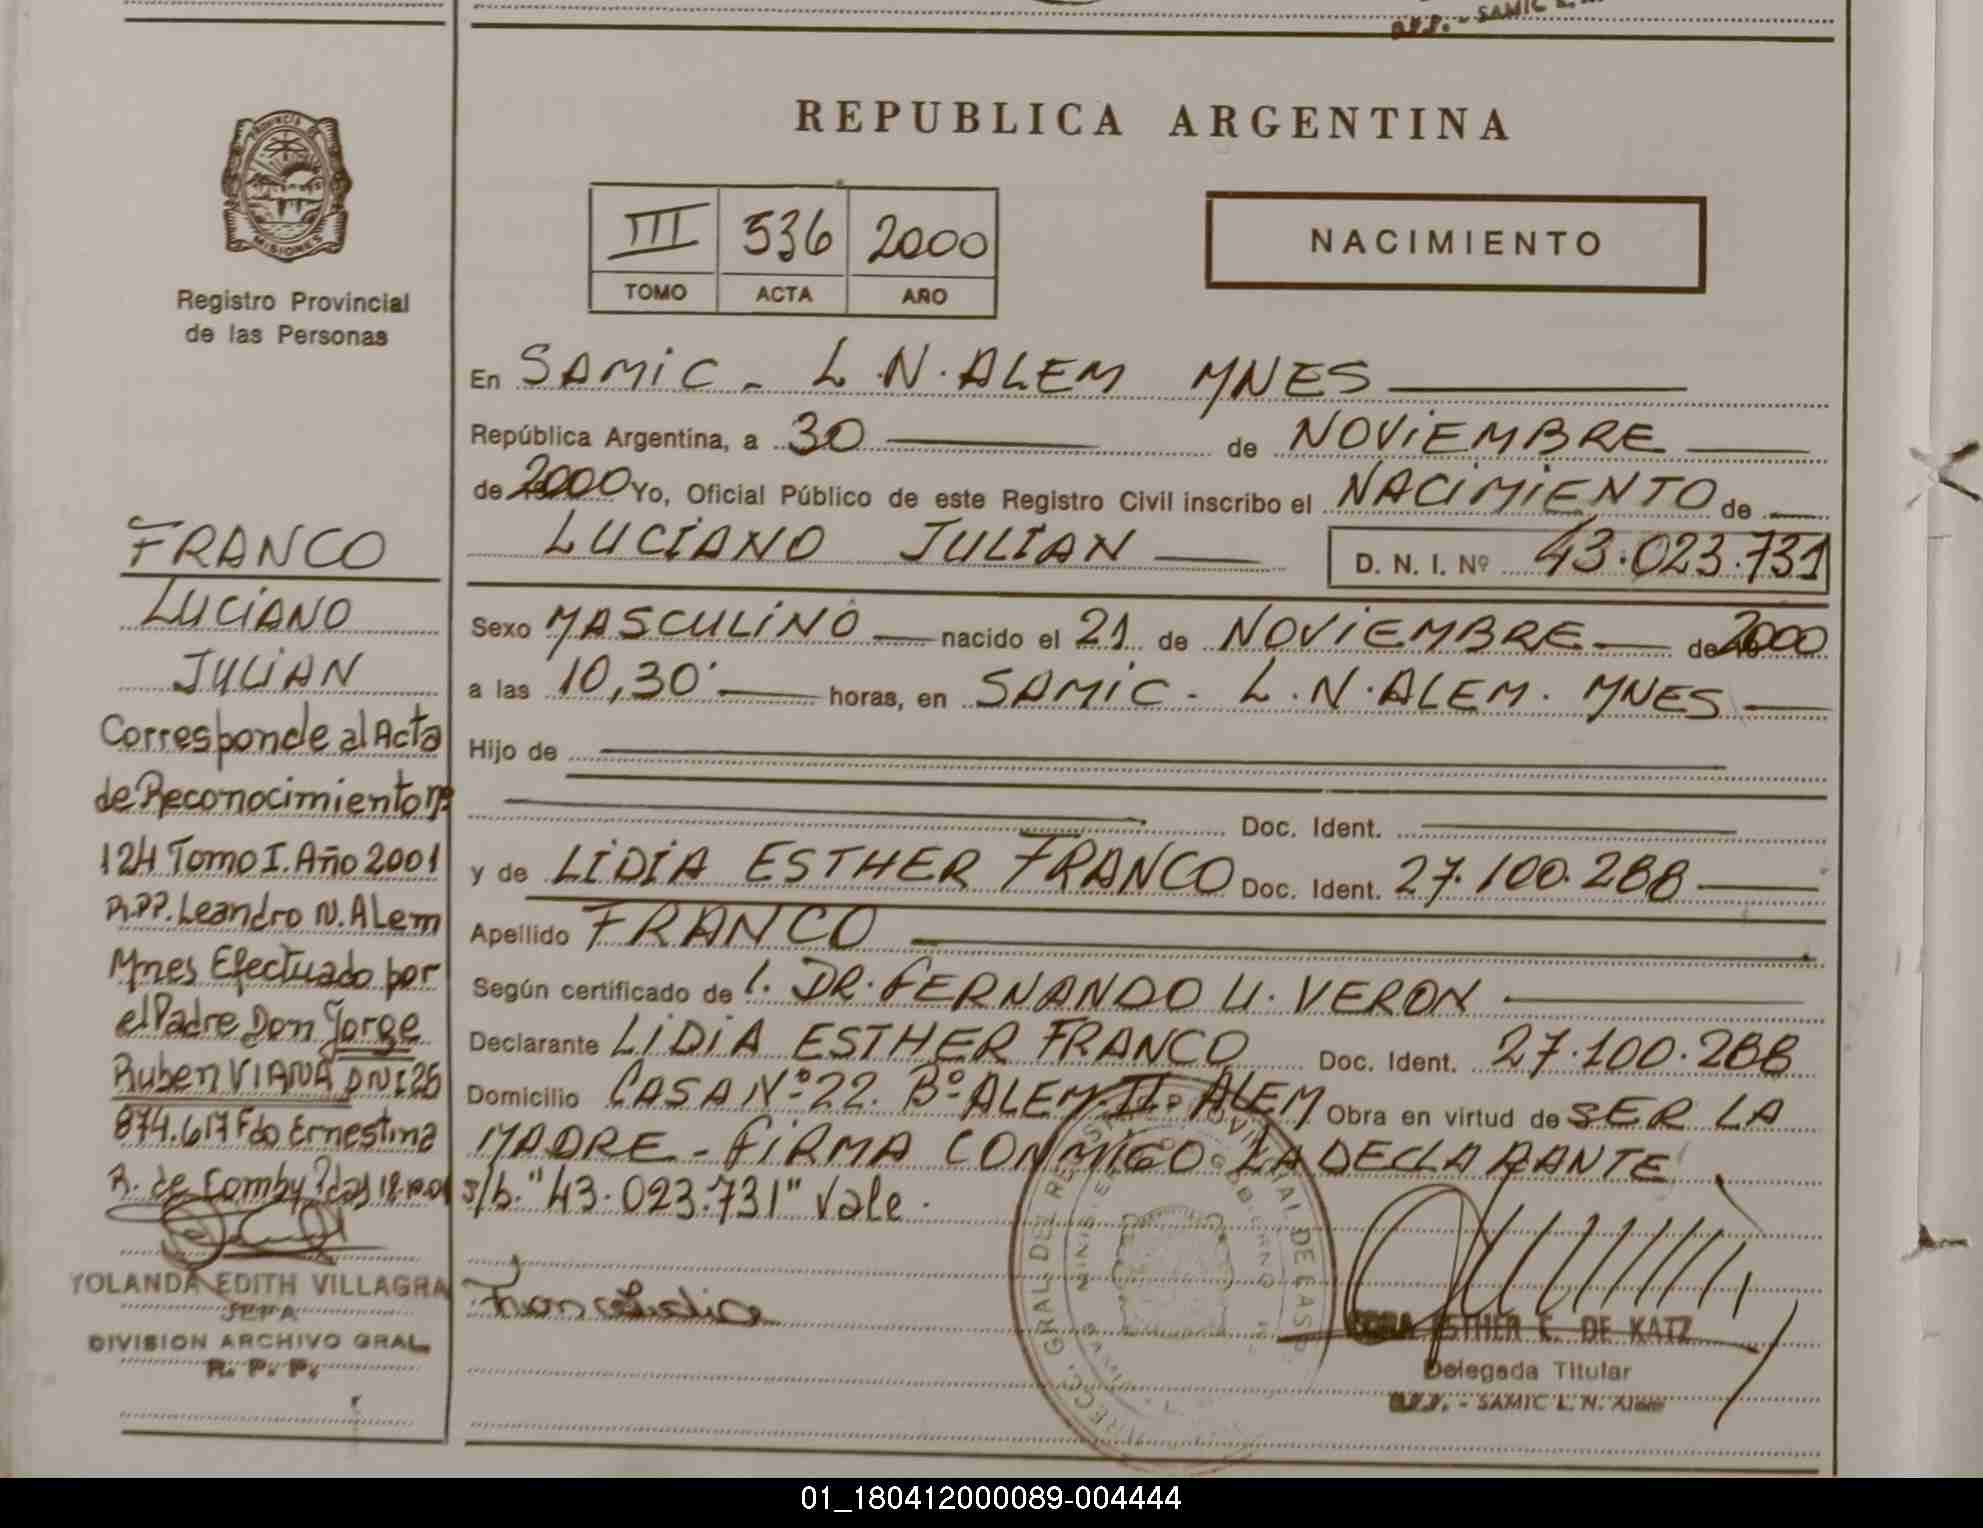 REPUBLICA ARGENTINA
PROVINCIA DE
MISIONES
Registro Provincial
de las Personas
III 536 2000
TOMO ACTA AÑO
NACIMIENTO
En SAMIC - L.N.ALEM MNES
República Argentina, a 30 de NOVIEMBRE
de 2000 Yo, Oficial Público de este Registro Civil inscribo el NACIMIENTO de
LUCIANO JULIAN D. N. I. Nº 43.023.731
Sexo MASCULINO nacido el 21 de NOVIEMBRE de 2000
a las 10,30' horas, en SAMIC - L.N.ALEM. MNES
Hijo de
Doc. Ident.
y de LIDIA ESTHER FRANCO Doc. Ident. 27.100.288
Apellido FRANCO
Según certificado de l. DR. FERNANDO U. VERON
Declarante LIDIA ESTHER FRANCO Doc. Ident. 27.100.288
Domicilio CASA Nº 22. Bº ALEM II - ALEM Obra en virtud de SER LA
MADRE - FIRMA CONMIGO LA DECLARANTE
s/b. "43.023.731" Vale.
FRANCO
LUCIANO
JULIAN
Corresponde al Acta
de Reconocimiento nº
124 Tomo I. Año 2001
R.P.P. Leandro N. ALem
Mnes Efectuado por
el Padre Don Jorge
Ruben VIANA DNI 26
874.617 Fdo Ernestina
R. de Comby
YOLANDA EDITH VILLAGRA
JEFA
DIVISION ARCHIVO GRAL.
R. P. P.
ESTHER E. DE KATZ
Delegada Titular
R.P.P. - SAMIC L. N. Alem
01_180412000089-004444